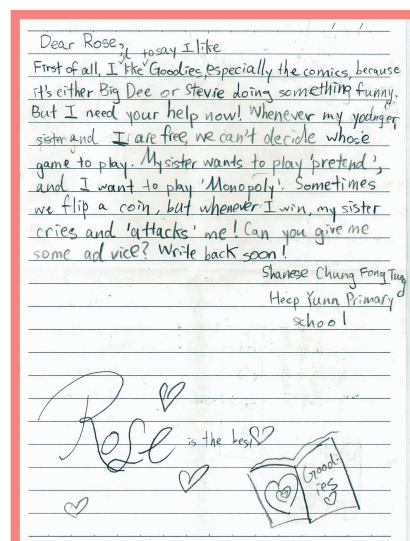 Dear Rose,
First of all, I'd like to say I like Goodies, especially the comics, because
it's either Big Dee or Stevie doing something funny.
But I need your help now! Whenever my younger
sister and I are free, we can't decide whose
game to play. My sister wants to play 'pretend',
and I want to play 'Monopoly'. Sometimes
we flip a coin, but whenever I win, my sister
cries and 'attacks' me! Can you give me
some advice? Write back soon!
Shanese Chung Fong Tung
Heep Yunn Primary
school
Rose is the best
Good-
ies